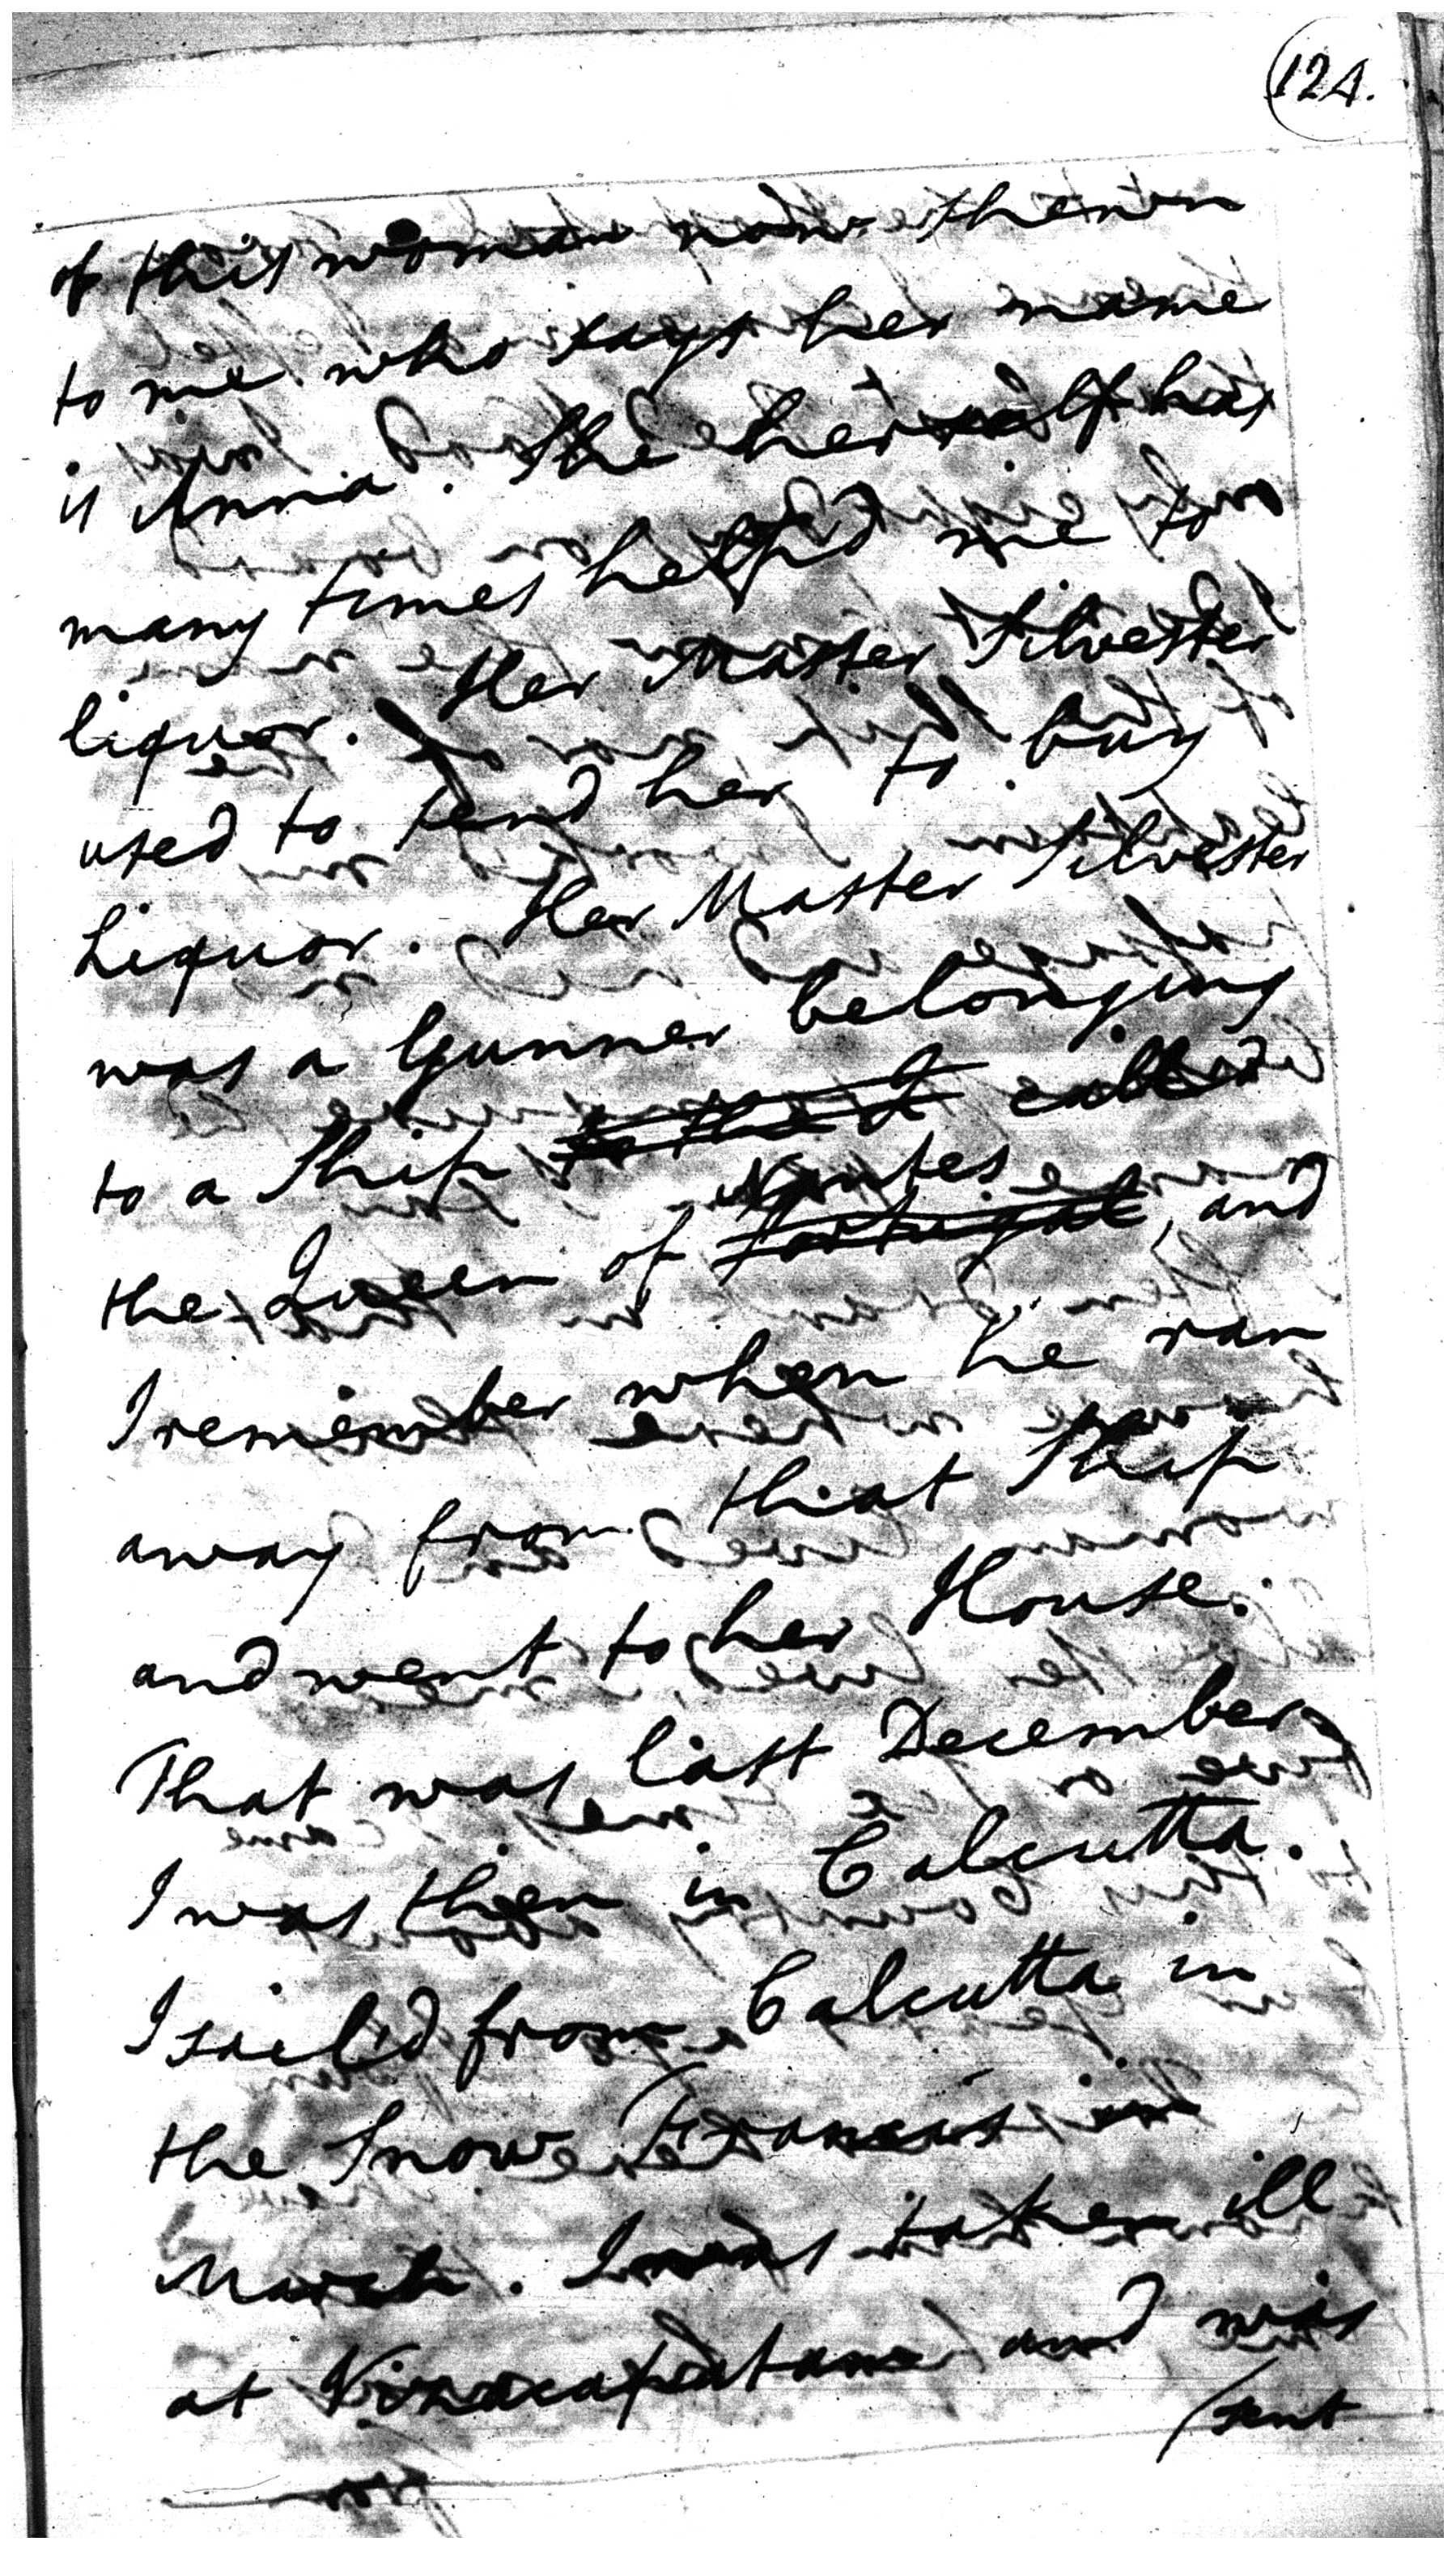 124.
of this woman now shewn
to me who says her name
is Anna. She herself has
many times help'd me to
liquor. Her Master Silvester
used to send her to buy
Liquor. Her Master Silvester
was a Gunner belonging
to a Ship called
Nantes
the Queen of Portugal, and
I remember when he ran
away from that Ship
and went to her House.
That was last December
I was then in Calcutta.
I sail'd from Calcutta in
the Snow Francis in
March. I was taken ill
at Vizacapatam and was
sent